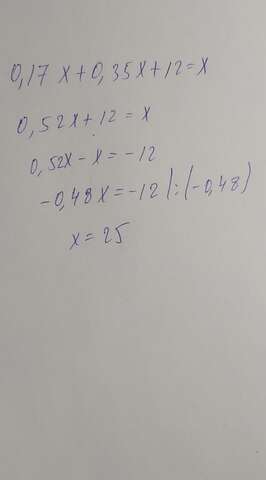 0,17 x + 0,35x + 12 = x
0,52x + 12 = x
0,52x - x = -12
-0,48x = -12 | : (-0,48)
x = 25